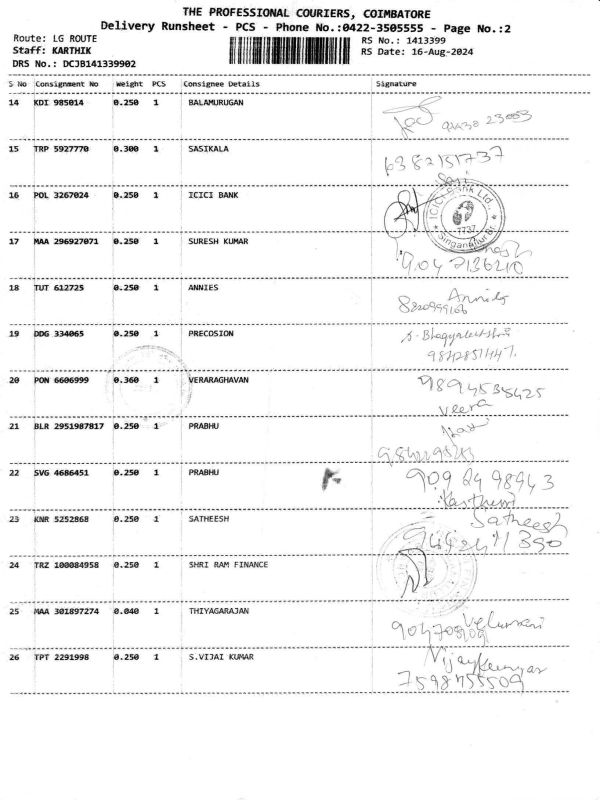 THE PROFESSIONAL COURIERS, COIMBATORE
Delivery Runsheet - PCS - Phone No.:0422-3505555 - Page No.:2
Route: LG ROUTE
Staff: KARTHIK
DRS No.: DCJB141339902
RS No.: 1413399
RS Date: 16-Aug-2024
S No Consignment No Weight PCS Consignee Details Signature
14 KDI 985014 0.250 1 BALAMURUGAN
15 TRP 5927770 0.300 1 SASIKALA
6382151737
16 POL 3267024 0.250 1 ICICI BANK
ICICI Bank Ltd.,
7737
Singanallur Br.
17 MAA 296927071 0.250 1 SURESH KUMAR
9042136210
18 TUT 612725 0.250 1 ANNIES
19 DDG 334065 0.250 1 PRECOSION
20 PON 6606999 0.360 1 VERARAGHAVAN
9894535425
Veera
21 BLR 2951987817 0.250 1 PRABHU
22 SVG 4686451 0.250 1 PRABHU
909 24 98943
23 KNR 5252868 0.250 1 SATHEESH
Satheesh
24 TRZ 100084958 0.250 1 SHRI RAM FINANCE
25 MAA 301897274 0.040 1 THIYAGARAJAN
Velumani
26 TPT 2291998 0.250 1 S.VIJAI KUMAR
Vijaykumar
7598755509